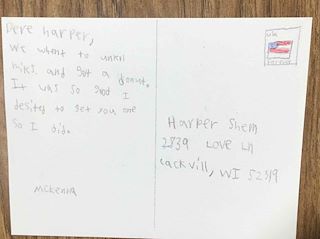 Dere harper,
We whent to unkil
mikes and got a donut.
It was so good I
desited to get you one
So I did.
Mckenna
usa
Forever
Harper Shem
2839 Love Ln
Lackvill, WI 52319